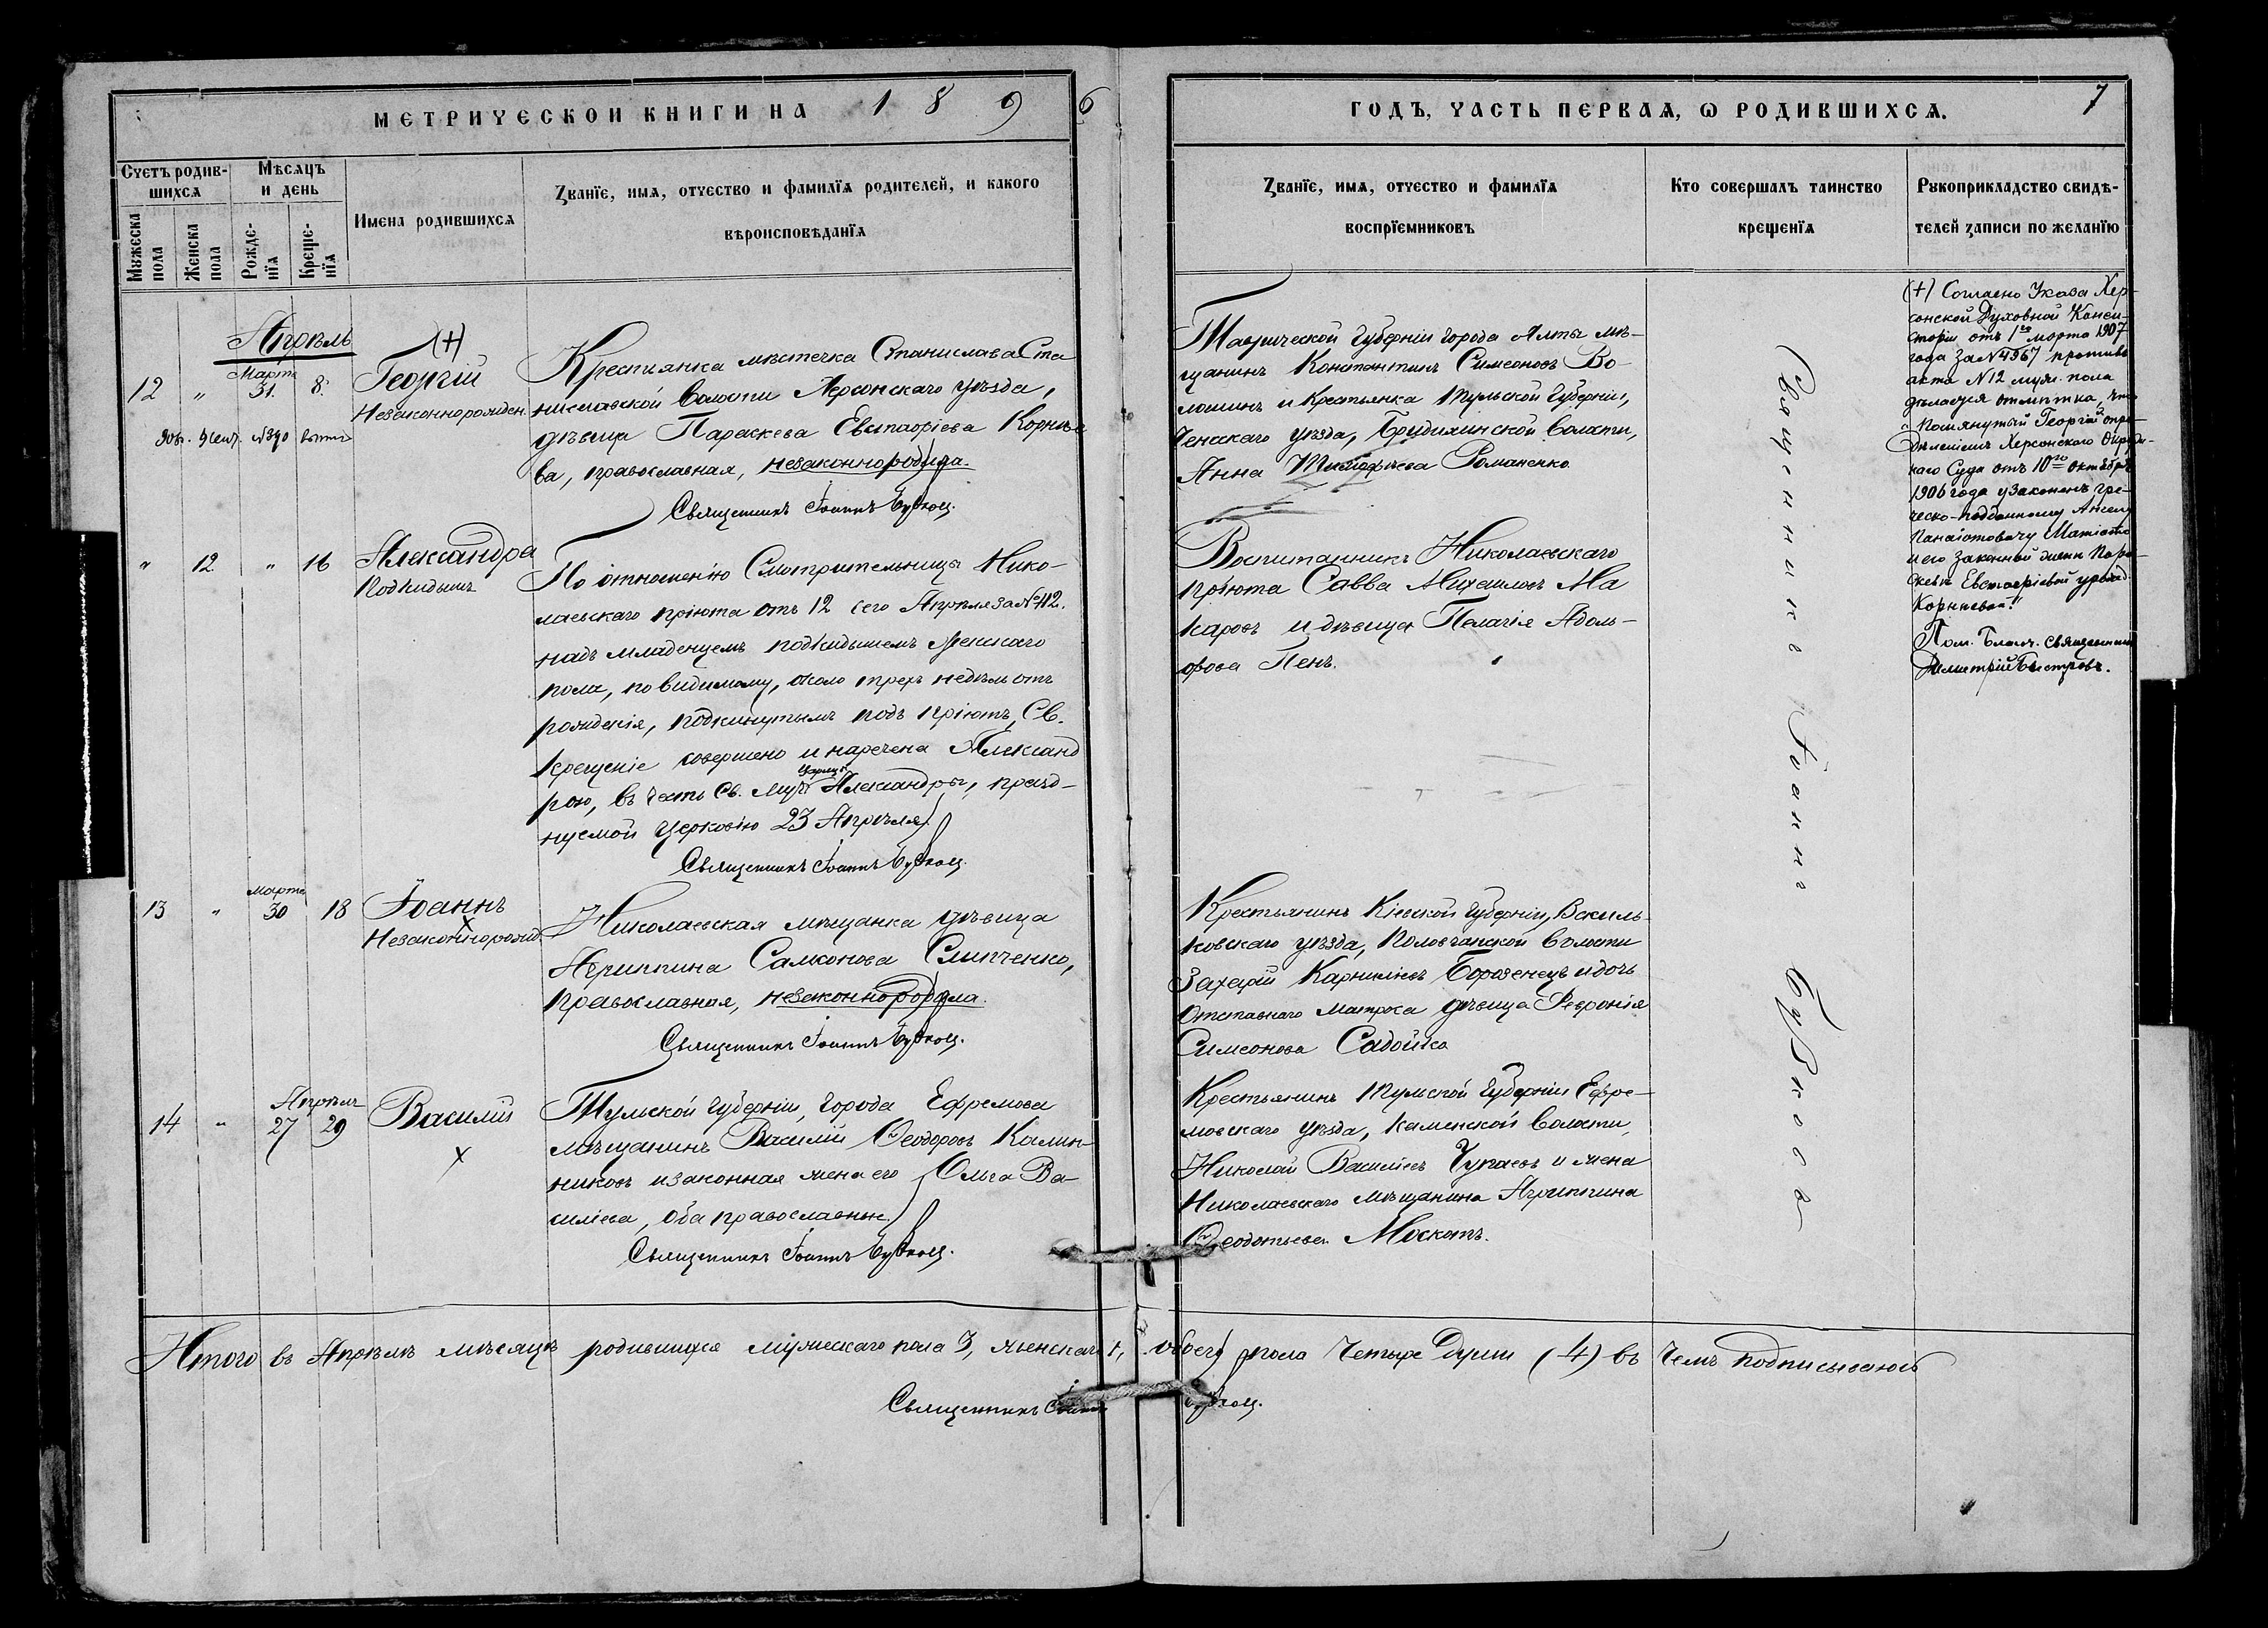 МЕТРИЧЕСКОЙ КНИГИ НА 1896
ГОДЪ, ЧАСТЬ ПЕРВАѦ, Ѡ РОДИВШИХСѦ.
7
Счетъ родив-
шихсѧ
Мѣсѧцъ
и день
Мужеска
пола
Женска
пола
Рожде-
нїѧ
Креще-
нїѧ
Имена родившихсѧ
Званїе, имѧ, отчество и фамилїѧ родителей, и какого
вѣроисповѣданїѧ
Званїе, имѧ, отчество и фамилїѧ
воспрїемниковъ
Кто совершалъ таинство
крещенїѧ
Рукоприкладство свидѣ-
телей записи по желанїю
Апрѣль
12 " Марта 31. 8.
(+)
Георгій
Незаконнорожден.
Крестьянка мѣстечка Станислава Ста
ниславской волости Херсонскаго уѣзда,
дѣвица Параскева Евстафіева Корніе
ва, православная, незаконнородила.
Священникъ Іоаннъ Бубнов.
Таврической Губерніи города Ялты мѣ-
щанинъ Константинъ Симеоновъ Во-
лошинъ и Крестьянка Тульской Губерніи,
уѣзда, волости,
Анна Романенко
(+) Согласно Указа Хер-
сонской Духовной Конси-
сторіи отъ 1го марта 1907
года за № 4967 противъ
акта № 12 муж. пола
дѣлается отмѣтка, что
"Помянутый Георгій опре-
дѣленіемъ Херсонскаго Окруж-
наго Суда отъ 10го октября
1906 года узаконенъ гре-
ческо-подданному
Панаіотовичу
и его законной женѣ Пара-
скевѣ Евстафіевой урожд.
Корніевой."
Пом. Благ. священникъ
Димитрій Быстровъ.
" 12 " 16
Александра
Подкидышъ
По отношенію Смотрительницы Нико-
лаевскаго пріюта отъ 12 сего Апрѣля за № 112.
надъ младенцемъ подкидышемъ женскаго
пола, повидимому, около трехъ недѣль отъ
рожденія, подкинутымъ подъ пріютъ, Св.
крещеніе совершено и наречена Александ
рою, въ честь Св. Муч. Царицы Александры, празд-
нуемой Церковію 23 Апрѣля.
Священникъ Іоаннъ Бубнов.
Воспитанникъ Николаевскаго
пріюта Савва Михаиловъ Ма
каровъ и дѣвица Пелагія Адоль-
фова Пенъ.
13 " марта 30 18
Іоаннъ
Незаконнорожд.
Николаевская мѣщанка дѣвица
Агриппина Самсонова Слипченко,
православная, незаконнородила.
Священникъ Іоаннъ Бубнов.
Крестьянинъ Кіевской Губерніи, Василь-
ковскаго уѣзда, волости
Захарій Карниліевъ и дочь
Отставнаго Матроса дѣвица Февронія
Симеонова Садойко
14 " Апрѣля 27 29
Василій
Тульской Губерніи, города Ефремова
мѣщанинъ Василій Ѳеодоровъ Калин-
никовъ и законная жена его Ольга Ва-
силіева, оба православные.
Священникъ Іоаннъ Бубнов.
Крестьянинъ Тульской Губерніи Ефре-
мовскаго уѣзда, Каменской волости,
Николай Василіевъ Чупаевъ и жена
Николаевскаго мѣщанина Агриппина
Ѳеодотьева Москатъ.
Священникъ Іоаннъ Бубнов
Итого въ Апрѣлѣ мѣсяцѣ родившихся мужескаго пола 3, женскаго 1, обоего пола Четыре Души (4) въ чемъ подписываюсь
Священникъ Іоаннъ Бубнов.